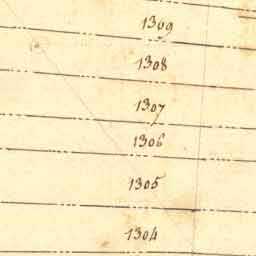 1309
1308
1307
1306
1305
1304